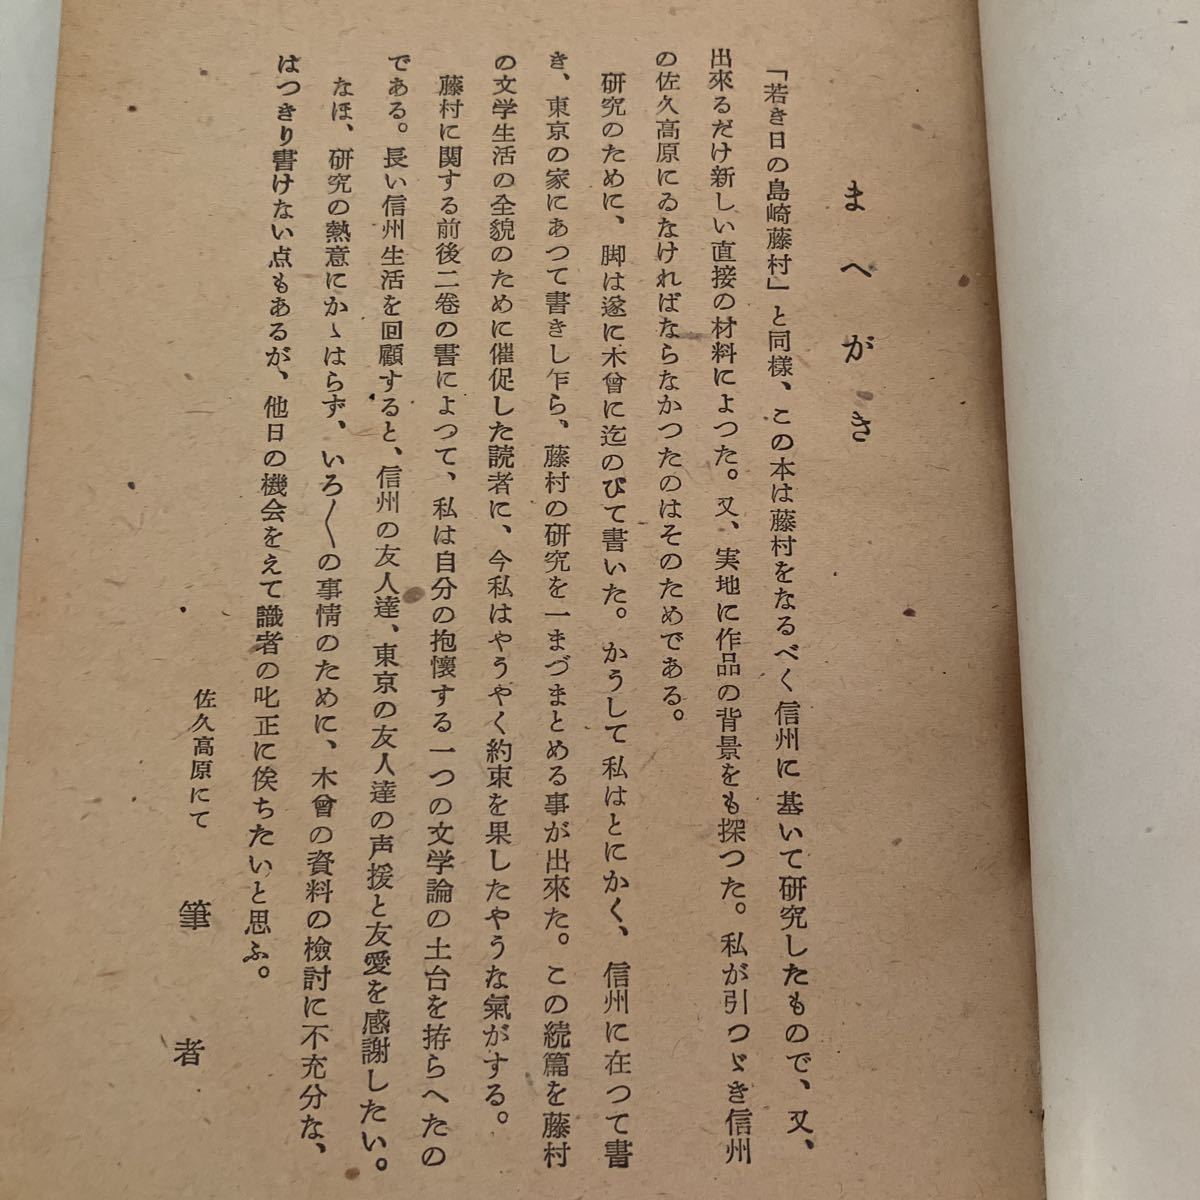 まへがき
「若き日の島崎藤村」と同様、この本は藤村をなるべく信州に基いて研究したもので、又、
出來るだけ新しい直接の材料によつた。又、実地に作品の背景をも探つた。私が引つゞき信州
の佐久高原にゐなければならなかつたのはそのためである。
研究のために、脚は遂に木曾に迄のびて書いた。かうして私はとにかく、信州に在つて書
き、東京の家にあつて書きし乍ら、藤村の研究を一まづまとめる事が出來た。この続篇を藤村
の文学生活の全貌のために催促した読者に、今私はやうやく約束を果したやうな氣がする。
藤村に関する前後二巻の書によつて、私は自分の抱懐する一つの文学論の土台を拵らへたの
である。長い信州生活を回顧すると、信州の友人達、東京の友人達の声援と友愛を感謝したい。
なほ、研究の熱意にかゝはらず、いろ〳〵の事情のために、木曾の資料の檢討に不充分な、
はつきり書けない点もあるが、他日の機会をえて識者の叱正に俟ちたいと思ふ。
佐久高原にて
筆者